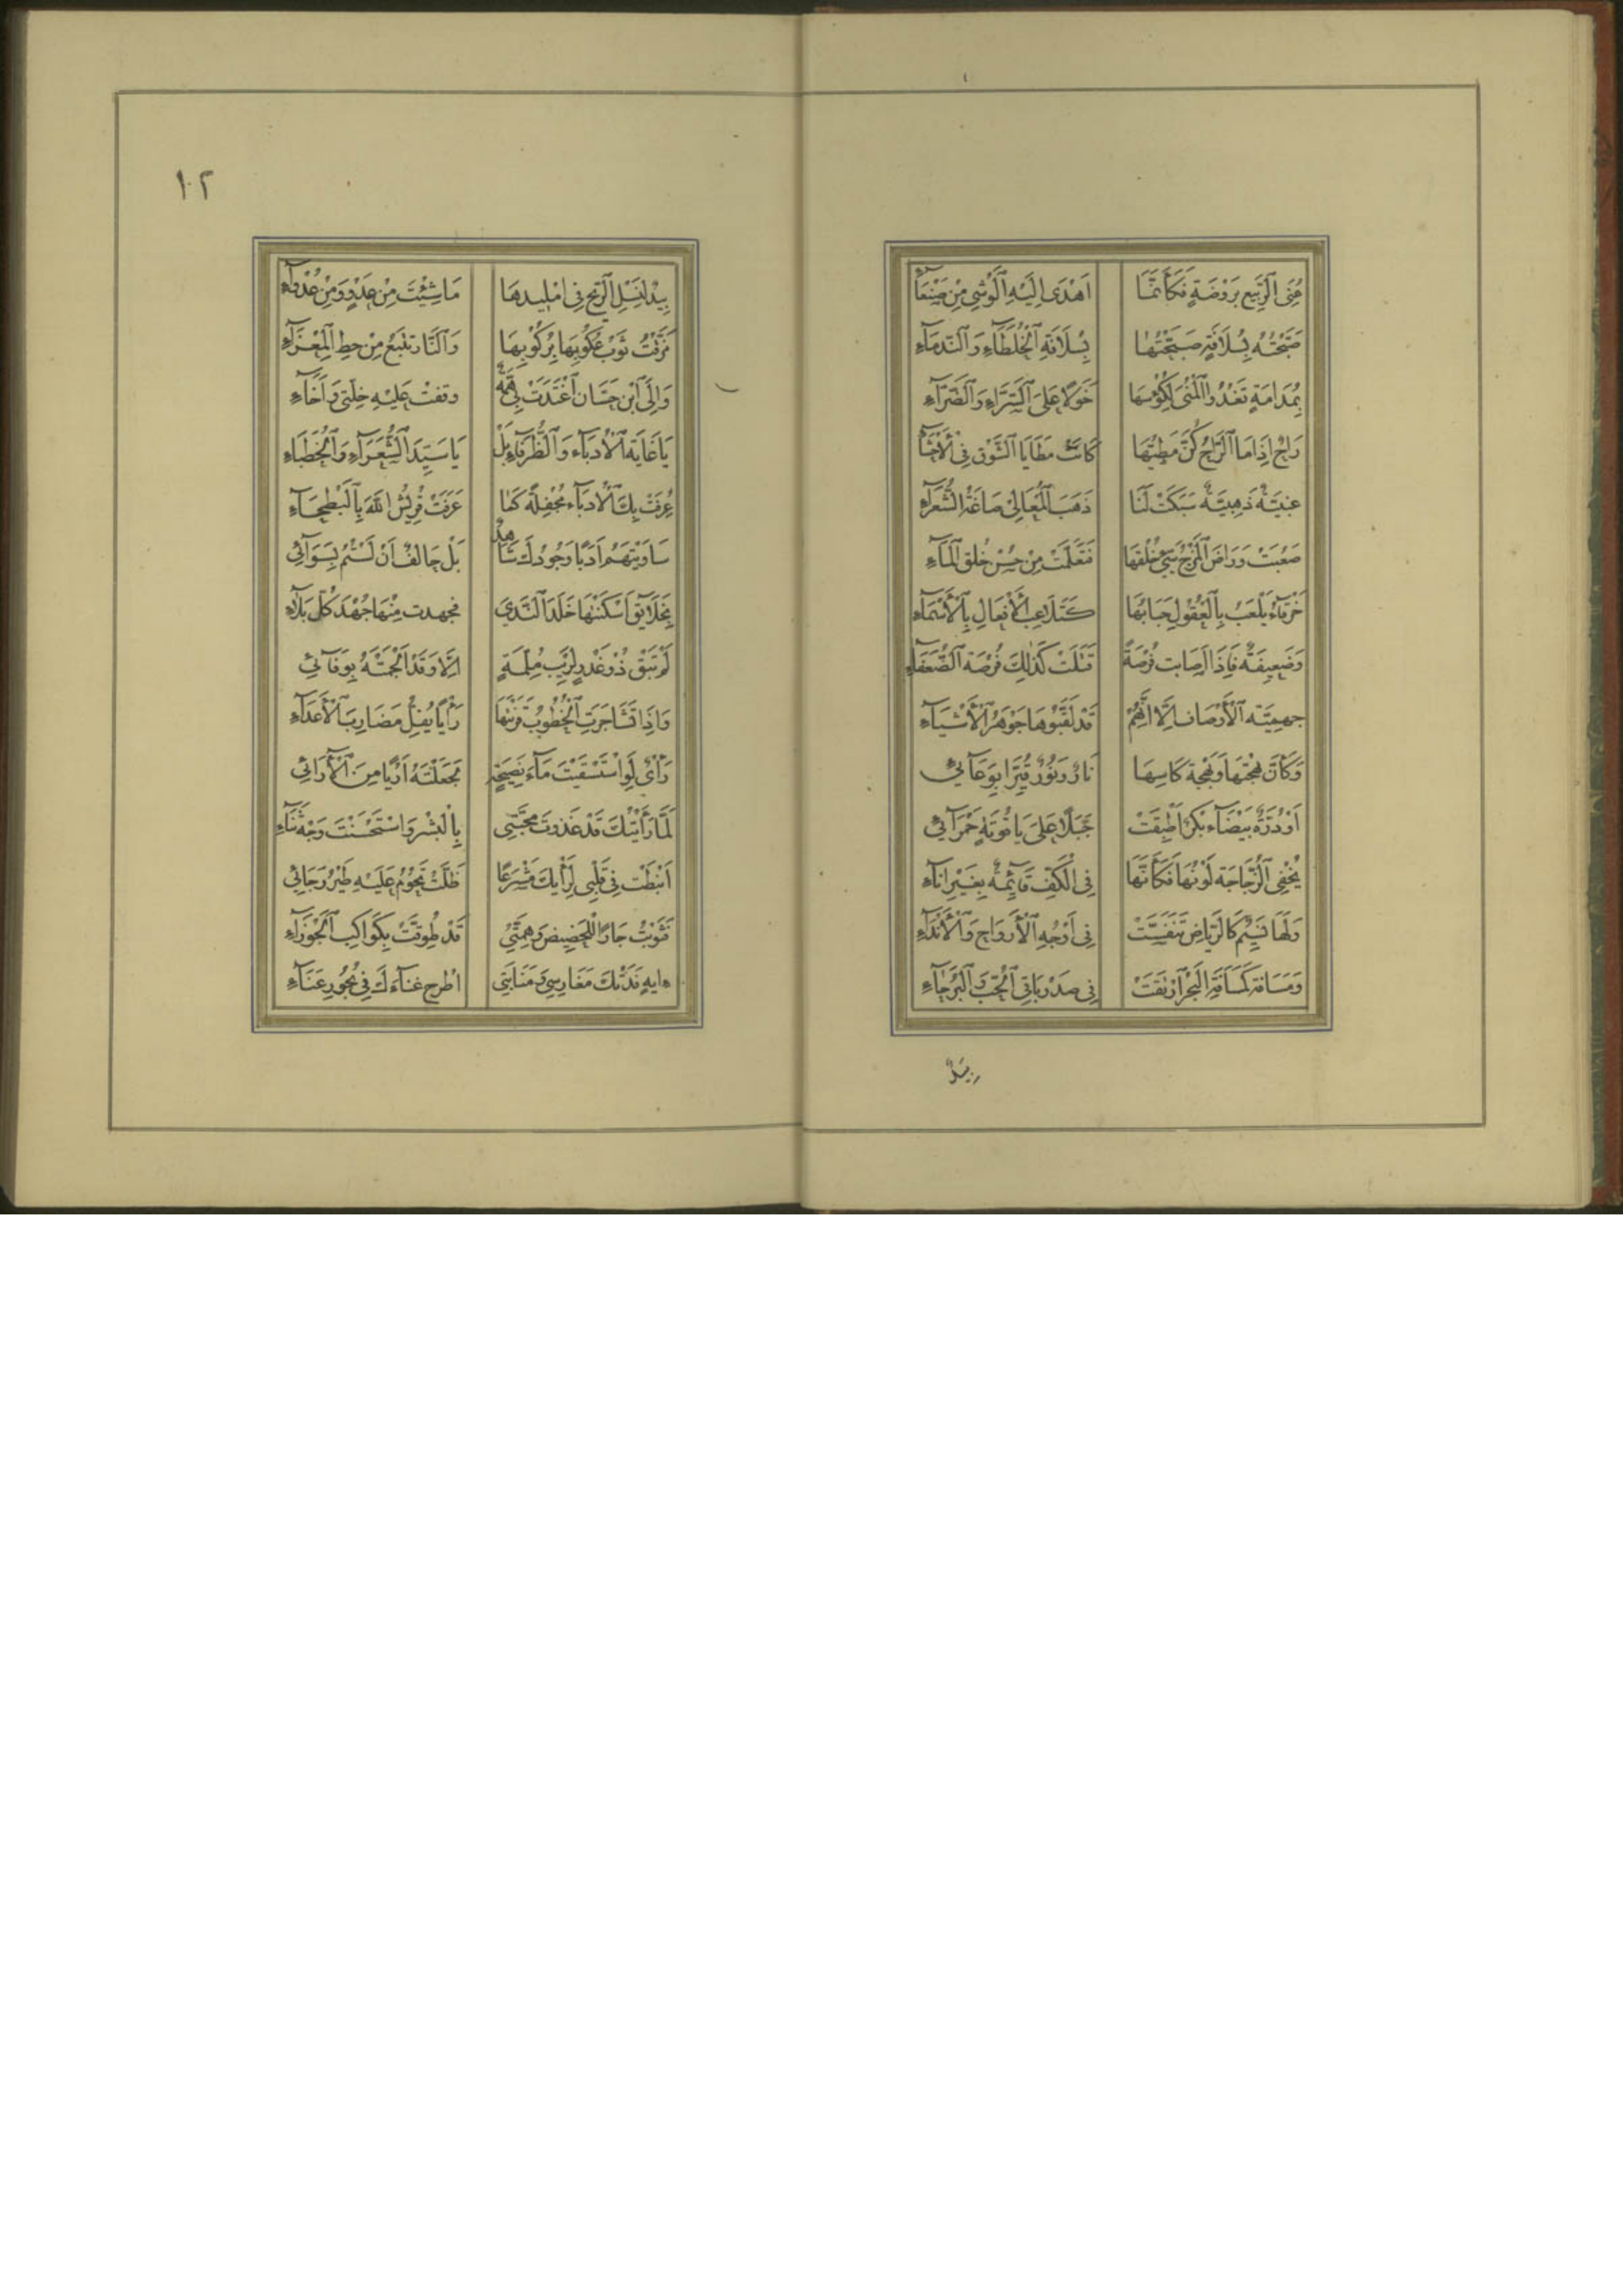 عُنِيَ ٱلرَّبِيعُ بِرَوْضَةٍ فَكَأَنَّمَا اَهْدَى اِلَيْهِ ٱلْوَشْيَ مِنْ صَنْعَآءِ
صَبَّحْتُهُ بِسُلَافَةٍ صَبَّحْتُهَا بِسُلَافَةِ ٱلْخُلَطَاءِ وَٱلنُّدَمَاءِ
بِمُدَامَةٍ تَغْدُو ٱلْمُنَى لِكُؤُسِهَا خَوَلًا عَلَى ٱلسَّرَّاءِ وَٱلضَّرَّآءِ
رَاحٌ اِذَا مَا ٱلرَّاحُ كُنَّ مَطِيَّهَا كَانَتْ مَطَايَا ٱلشَّوْقِ فِي ٱلْأَحْشَآ
عِنَبِيَّةٌ ذَهَبِيَّةٌ سَبَكَتْ لَنَا ذَهَبَ ٱلْمَعَالِي صَاغَةُ ٱلشُّعَرَآءِ
صَعُبَتْ وَرَاضَ ٱلْمَزْجُ سَيِّئَ خُلْقِهَا فَتَعَلَّمَتْ مِنْ حُسْنِ خُلْقِ ٱلْمَآءِ
خَرْقَاءُ يَلْعَبُ بِٱلْعُقُولِ حَبَابُهَا كَتَلَاعُبِ ٱلْأَفْعَالِ بِٱلْأَسْمَآءِ
وَضَعِيفَةٌ فَاِذَا اَصَابَتْ فُرْصَةً قَتَلَتْ كَذٰلِكَ فُرْصَةُ ٱلضُّعَفَاءِ
جهمِيَّة ٱلْأَوْصَافِ اِلَّا اَنَّهُمْ قَدْ لَقَّبُوهَا جَوْهَرَ ٱلْأَشْيَآءِ
وَكَأَنَّ بَهْجَتَهَا وَبَهْجَةَ كَاسِهَا نَارٌ وَنُورٌ قُيِّدَا بِوِعَآئِي
اَوْ دُرَّةٌ بَيْضَآء بِكْرٌ اُطْبِقَتْ حَبَلًا عَلَى يَاقُوتَةٍ حَمْرَآئِي
يُخْفِي ٱلزُّجَاجَةَ لَوْنُهَا فَكَأَنَّهَا فِي ٱلْكَفِّ قَآئِمَةٌ بِغَيْرِ اِنَآءِ
وَلَهَا نَسِيمٌ كَالرِّيَاضِ تَنَفَّسَتْ فِي اَوْجُهِ ٱلْأَرْوَاحِ وَٱلْأَنْدَآءِ
وَمَسَافَةٍ كَمَسَافَةِ ٱلْهَجْرِ ٱرْتَقَتْ فِي صَدْرِ بَاقِي ٱلْحُبِّ وَٱلْبُرَحَآءِ
بِيدٌ
١٢
بِيدٌ لِنَسْلِ ٱلرِّيحِ فِي اِمْلِيدِهَا مَا شِئْتَ مِنْ عَدْوٍ وَمِنْ عُدَوَآءِ
مَزَّقْتُ ثَوْبَ عُكُوبِهَا بِرُكُوبِهَا وَٱلنَّار تَنْبَعُ مِنْ حصِ ٱلْمَعْزَآءِ
وَاِلَى ٱبْنِ حَسَّان ٱغْتَدَتْ بِي هِمَّةٌ وَقَفَتْ عَلَيْهِ خِلَّتِي وَاَخَآءِ
يَا غَايَةَ ٱلْأُدَبَآءِ وَٱلظُّرَفَآءِ بَلْ يَا سَيِّدَ ٱلشُّعَرَآءِ وَٱلْخُطَبَاءِ
عُرِفَتْ بِكَ ٱلْأُدَبَآء مُحْفِلَةً كَمَا عَرَفَتْ قُرَيْشُ اللهَ بِٱلْبَطْحَآءِ
سَاوَيْتَهُمْ اَدَبًا وَجُودُكَ شَاهِدٌ بَلْ حَالِفٌ اَنْ لَسْتُمُ بِسَوَآئِي
بِخَلَآئِقٍ اَسْكَنْتَهَا خَلَدَ ٱلنَّدَي فجهدت مِنْهَا جُهْدَ كُلِّ بَلَآءِ
لَمْ تَبْقَ ذُو غَدْرٍ لِرَيْبِ مُلِمَّةٍ اِلَّا وَقَدْ اَلْجَمْتَهُ بِوَفَآئِي
وَاِذَا تَشَاجَرَتِ ٱلْخُطُوبُ قَرَيْتَهَا رَأْيًا يُفِلُّ مَضَارِبَ ٱلْأَعْدَآءِ
رَأْيٌ لَوِ ٱسْتَسْقَيْتَ مَآءَ نَصِيحَةٍ لَجَعَلْتَهُ اَرْيًا مِنَ ٱلْأٰرَائِي
لَمَّا رَأَيْتُكَ قَدْ غَذَوْتَ مَحَبَّتِي بِٱلْبِشْرِ وَاسْتَحْسَنْتَ وَجْهَ ثَنَاءِ
اَنْبَطْت فِي قَلْبِي لِرَأْيِكَ مَشْرَعًا ظَلَّتْ تَحُومُ عَلَيْهِ طَيْرُ رَجَائِي
فَثَوَيْتُ جَارًا لِلْحَضِيضِ وَهِمَّتِي قَدْ طُوِّقَتْ بِكَوَاكِبِ ٱلْجَوْزَآءِ
ءايهٍ فَدَتْكَ مَغَارِسِي وَمَنَابِتِي اُطْرح غنآءَكَ فِي بُحُورِ عَنَآءِ